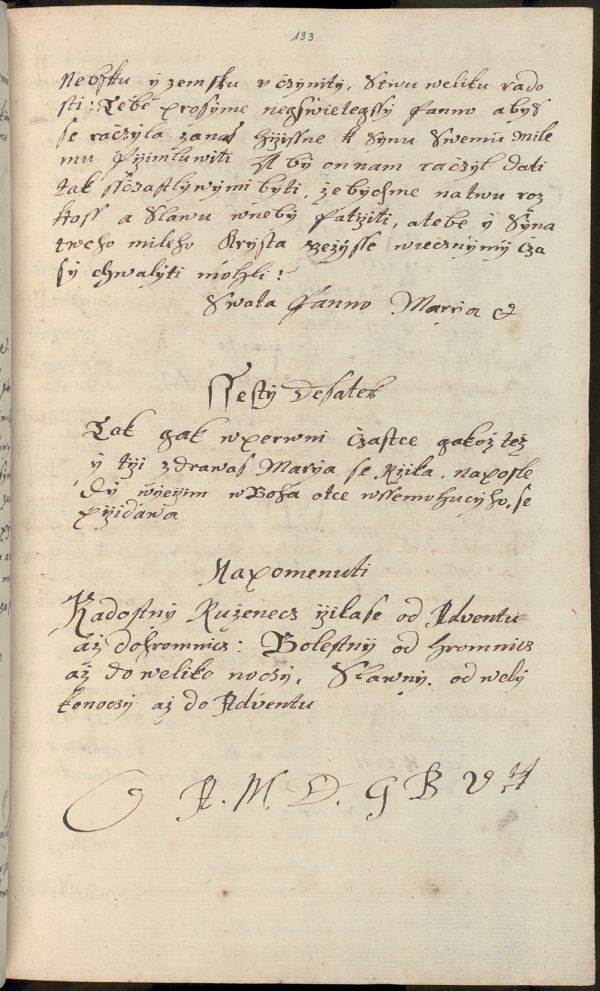 133
Nebsku y zemsku v czynity, Stwu weliku rado
sti: Tebe prosyme negswietegssy panno abys
se raczyla zanas hgissne k Synu Swemu mile
mu przimluwiti A by on nam raczyl dati
tak sstzastlywymi byti, ze bychme na twu roz
koss a Slawu wneby patrziti, a tebe y Syna
tweho mileho Krysta Gezysse wiecznymy cza
sy chwalyti mohli:
Swata panno Marya &
Ssesty Desatek
Tak gak w perwni Czastce gakoz tez
y trzi zdrawas Marya se Rzika. naposle
dy wierzim w Boha otce wssemohucyho, se
przidawa
Napomenuti
Radostny Ruzenecz rzika se od Adventu
az do hromnicz: Bolestny od hromnicz
az do weliko noczy, Slawny. od wely
konoczy az do Adventu
O A. M. D. G B V